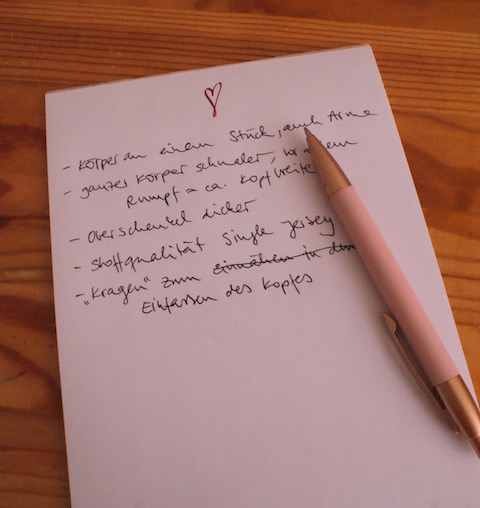 - Körper an einem Stück, auch Arme
- ganzer Körper schmaler, vor allem
Rumpf = ca. Kopfbreite
- Oberschenkel dicker
- Stoffqualität Single Jersey
- "Kragen" zum einnähen in den
Einfassen des Kopfes